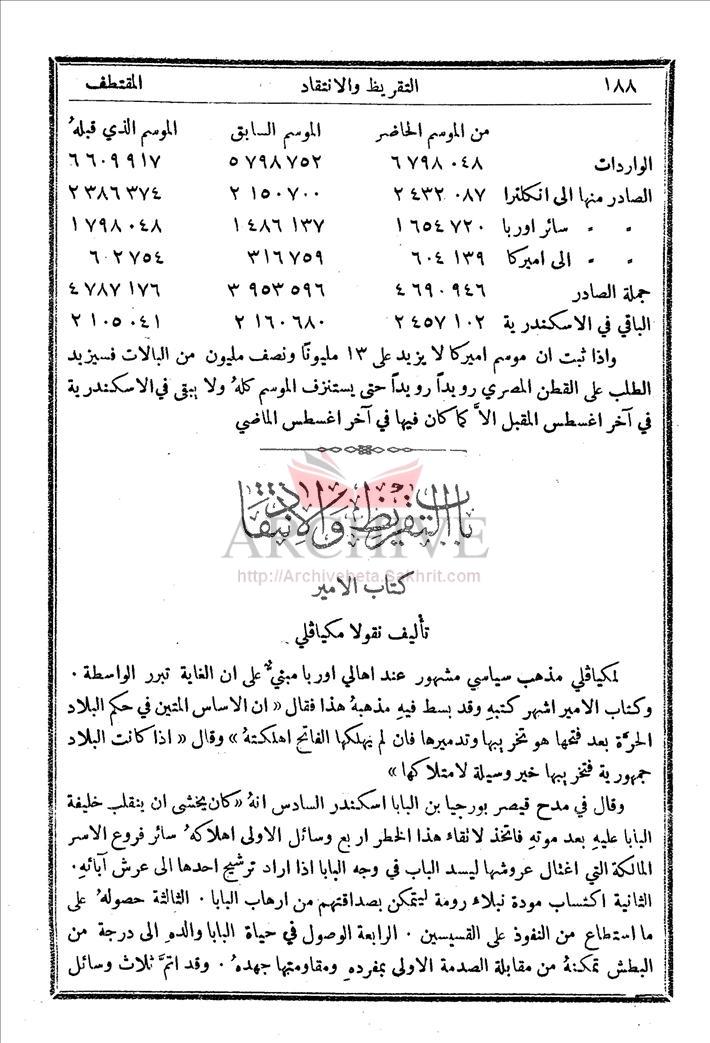 ١٨٨ التقريظ والانتقاد المقتطف
من الموسم الحاضر الموسم السابق الموسم الذي قبلهُ
الواردات ٦٧٩٨٠٤٨ ٥٧٩٨٧٥٢ ٦٦٠٩٩١٧
الصادر منها الى انكلترا ٢٤٣٢٠٨٧ ٢١٥٠٧٠٠ ٢٣٨٦٣٧٤
" " سائر اوربا ١٦٥٤٧٢٠ ١٤٨٦١٣٧ ١٧٩٨٠٤٨
" " الى اميركا ٦٠٤١٣٩ ٣١٦٧٥٩ ٦٠٢٧٥٤
جملة الصادر ٤٦٩٠٩٤٦ ٣٩٥٣٥٩٦ ٤٧٨٧١٧٦
الباقي في الاسكندرية ٢٤٥٧١٠٢ ٢١٦٠٦٨٠ ٢١٠٥٠٤١
واذا ثبت ان موسم اميركا لا يزيد على ١٣ مليونًا ونصف مليون من البالات فسيزيد
الطلب على القطن المصري رويداً رويداً حتى يستنزف الموسم كلهُ ولا يبقى في الاسكندرية
في آخر اغسطس المقبل الاَّ كما كان فيها في آخر اغسطس الماضي
باب التقريظ والانتقاد
ARCHIVE
http://Archivebeta.Sakhrit.com
كتاب الامير
تأليف نقولا مكياڤلي
لمكياڤلي مذهب سياسي مشهور عند اهالي اوربا مبنيٌّ على ان الغاية تبرر الواسطة .
وكتاب الامير اشهر كتبهِ وقد بسط فيهِ مذهبهُ هذا فقال « ان الاساس المتين في حكم البلاد
الحرَّة بعد فتحها هو تخريبها وتدميرها فان لم يهلكها الفاتح اهلكتهُ » وقال « اذا كانت البلاد
جمهورية فتخريبها خير وسيلة لامتلاكها »
وقال في مدح قيصر بورجيا بن البابا اسكندر السادس انهُ « كان يخشى ان ينقلب خليفة
البابا عليهِ بعد موتهِ فاتخذ لاتقاء هذا الخطر اربع وسائل الاولى اهلاكهُ سائر فروع الاسر
المالكة التي اغتال عروشها ليسد الباب في وجه البابا اذا اراد ترشيح احدها الى عرش آبائهِ .
الثانية اكتساب مودة نبلاء رومة ليتمكن بصداقتهم من ارهاب البابا . الثالثة حصولهُ على
ما استطاع من النفوذ على القسيسين . الرابعة الوصول في حياة البابا والدهِ الى درجة من
البطش تمكنهُ من مقابلة الصدمة الاولى بمفردهِ ومقاومتها جهدهُ . وقد اتمَّ ثلاث وسائل